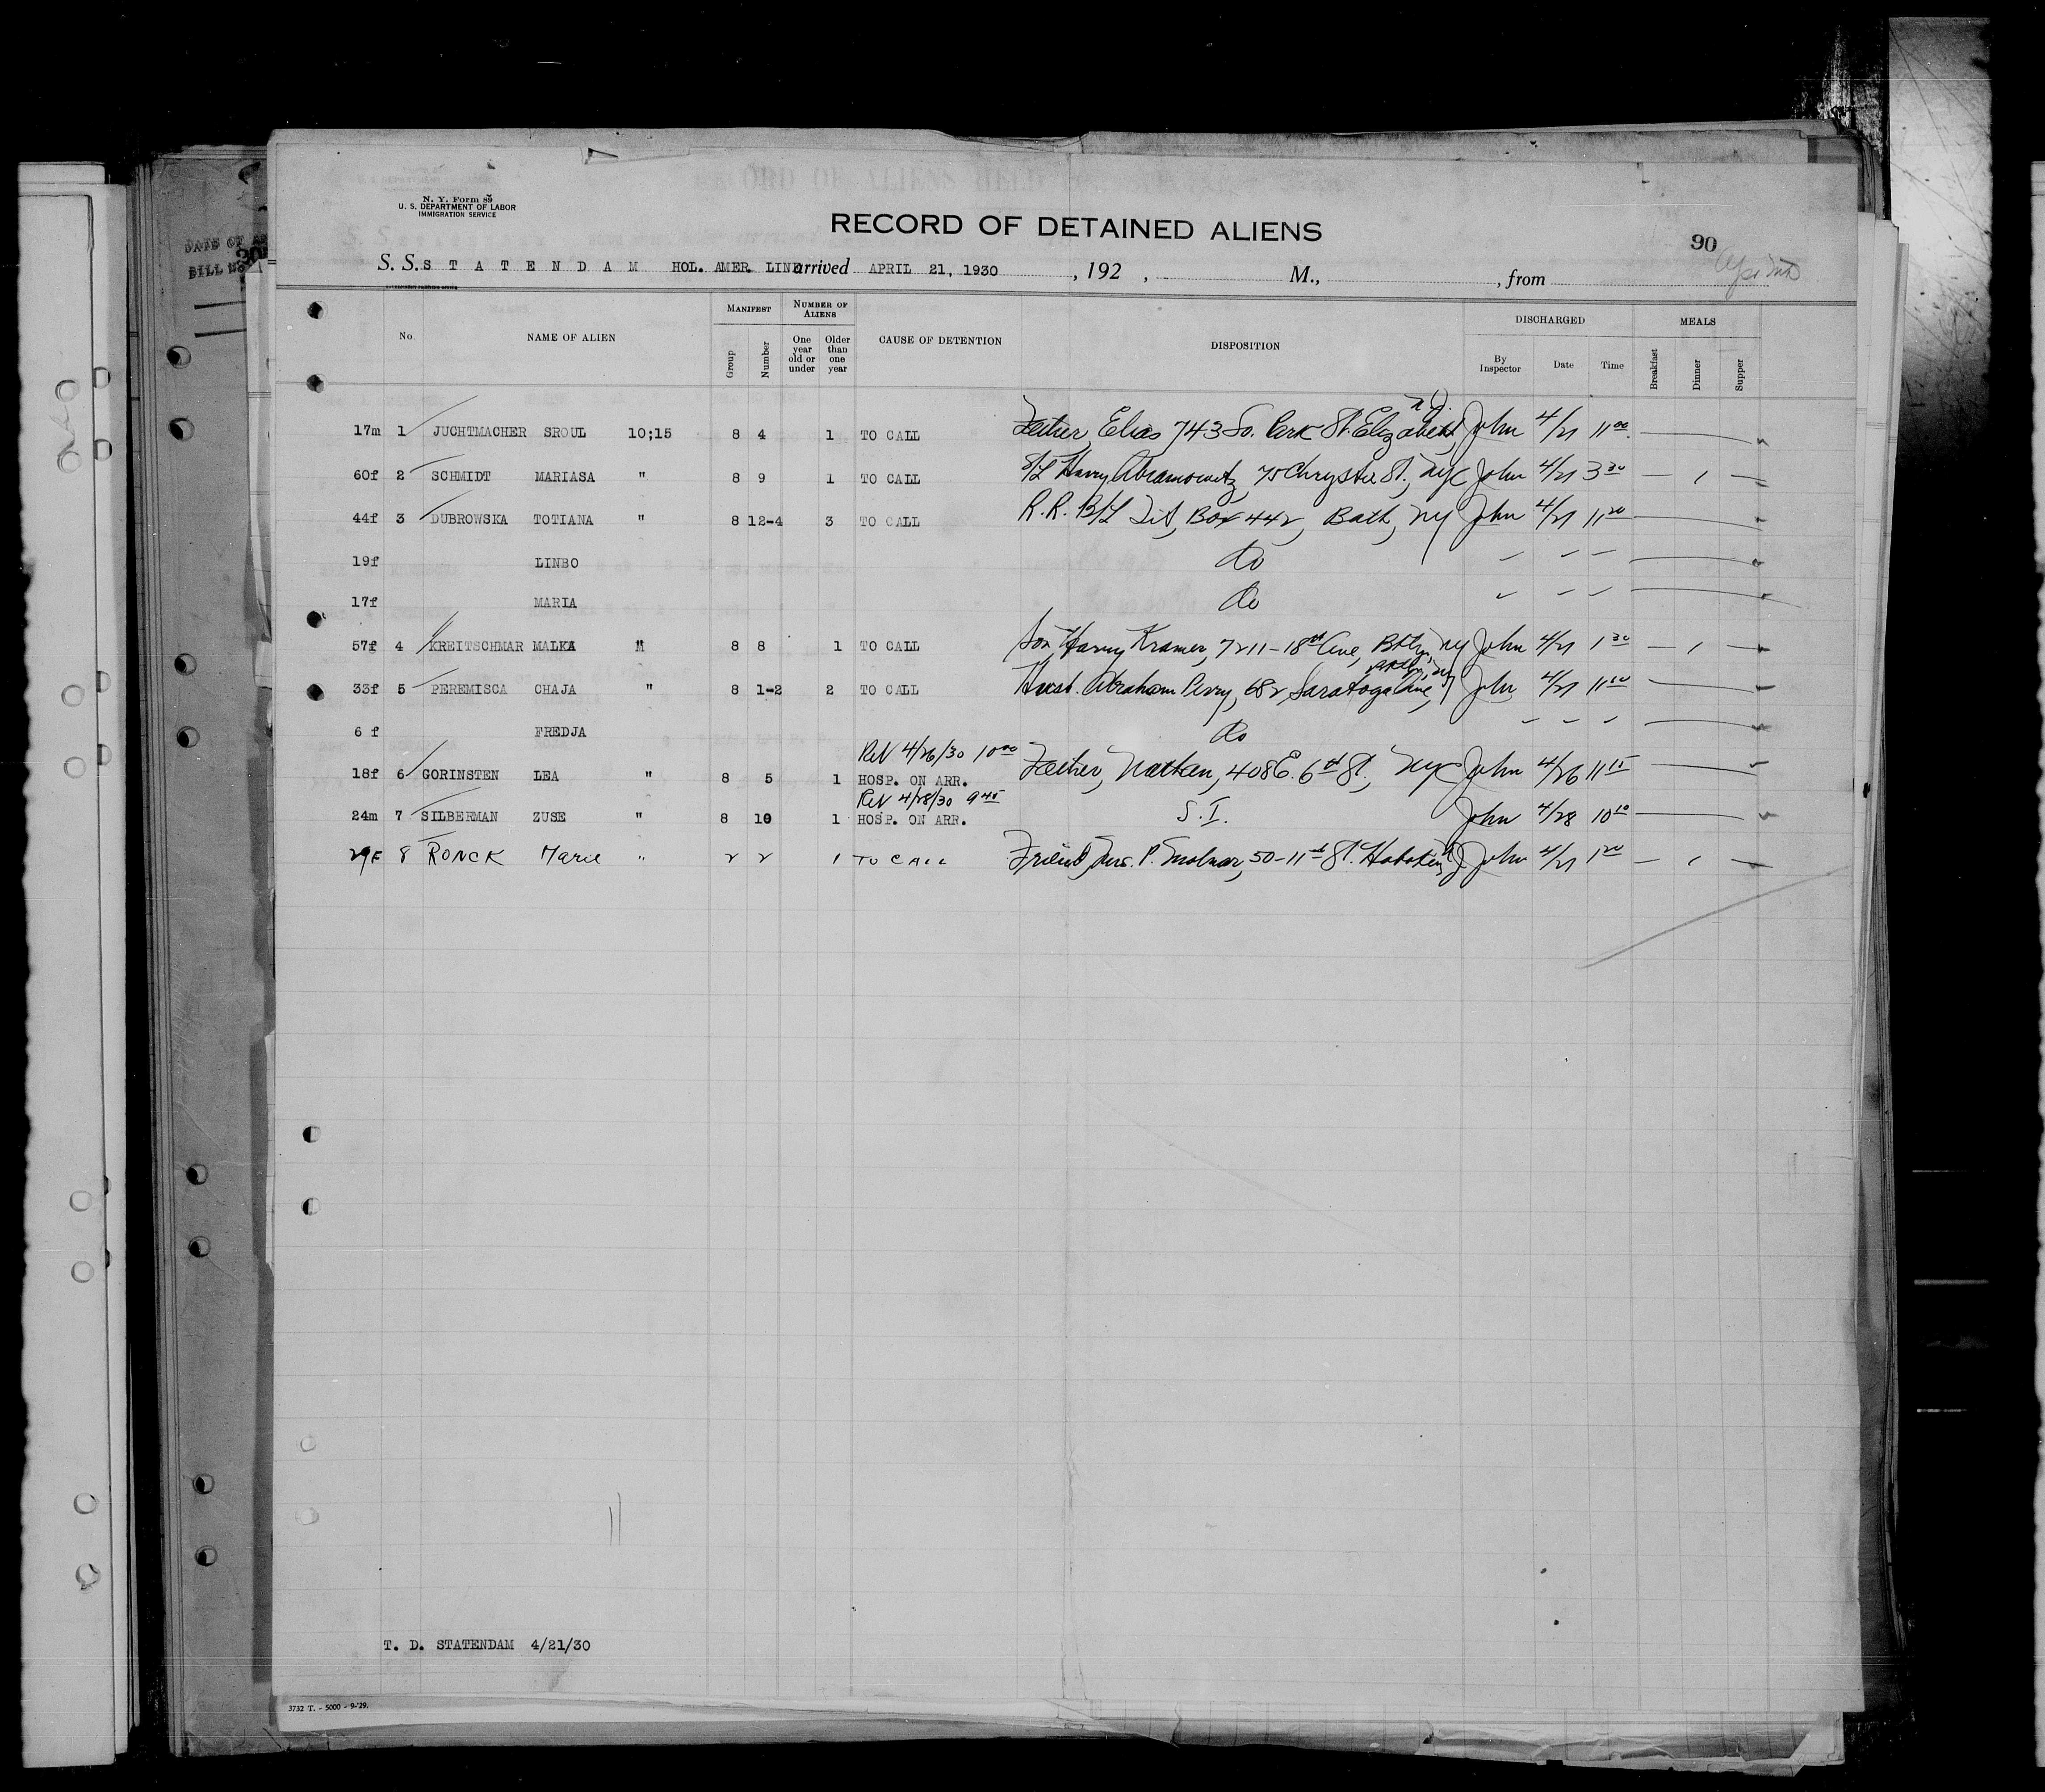 DATE OF
BILL
N. Y. Form 85
U. S. DEPARTMENT OF LABOR
IMMIGRATION SERVICE
RECORD OF DETAINED ALIENS
90
S. S. S T A T E N D A M HOL. AMER. LINE arrived APRIL 21, 1930, 192 , M., , from
No. NAME OF ALIEN MANIFEST Group Number NUMBER OF ALIENS One year old or under Older than one year CAUSE OF DETENTION DISPOSITION DISCHARGED By Inspector Date Time MEALS Breakfast Dinner Supper
17m 1 JUCHTMACHER SROUL 10;15 8 4 1 TO CALL Father, Elias 743 So. Park St. Elizabeth, N.J. John 4/21 11 00
60f 2 SCHMIDT MARIASA " 8 9 1 TO CALL S/L Harry Abramowitz, 75 Chrystie St., NYC John 4/21 3 30
44f 3 DUBROWSKA TOTIANA " 8 12-4 3 TO CALL R.R. B/L Tit, Box 442, Bath, NY John 4/21 11 20
19f LINBO Do
17f MARIA Do
57f 4 KREITSCHMAR MALKA " 8 8 1 TO CALL Son, Harry Kramer, 7211-18th Ave, Bklyn, NY John 4/21 1 30
33f 5 PEREMISCA CHAJA " 8 1-2 2 TO CALL Husb. Abraham Perry, 682 Saratoga Ave, Bklyn, NY John 4/21 11 10
6 f FREDJA Do
Rel 4/26/30 10 00
18f 6 GORINSTEN LEA " 8 5 1 HOSP. ON ARR. Father, Nathan, 408 E. 6th St., NYC John 4/26 11 15
Rel 4/28/30 9 45
24m 7 SILBERMAN ZUSE " 8 10 1 HOSP. ON ARR. S.I. John 4/28 10 10
29F 8 RONCK Marie " 2 2 1 TO CALL Friend, Mrs. P. Molnar, 50-11th St. Hoboken, NJ John 4/21 1 20
T. D. STATENDAM 4/21/30
3732 T. - 5000 - 9-'29.